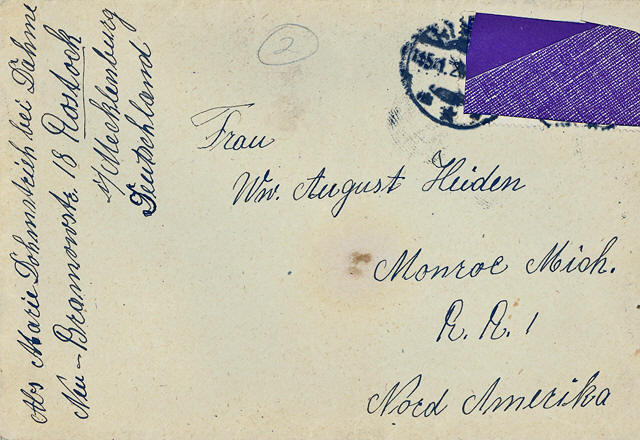 Abs Marie Dohmstreich bei Dähme
Neu-Bramowstr. 18 Rostock
i/Mecklenburg
Deutschland
2
Frau
Ww. August Heiden
Monroe Mich.
R. R. 1
Nord Amerika